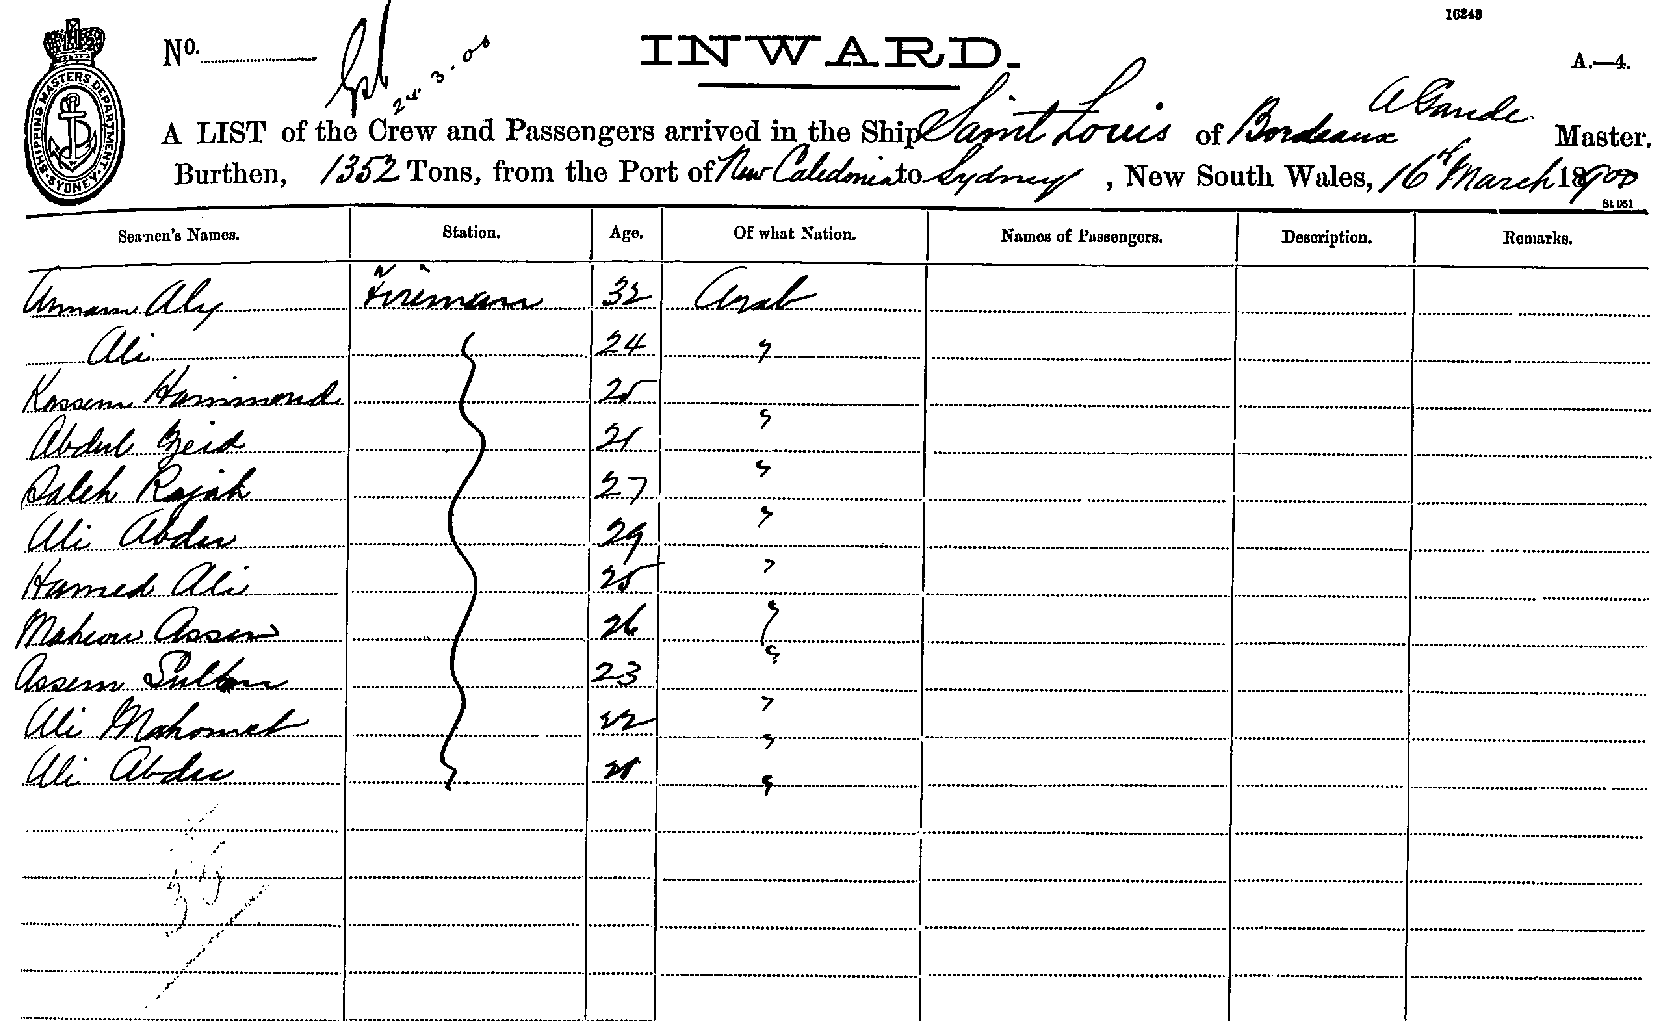 16243
No.
24.3.00
INWARD.
A.—4.
SHIPPING MASTERS DEPARTMENT SYDNEY
A Gande
A LIST of the Crew and Passengers arrived in the Ship Saint Louis of Bordeaux Master.
Burthen, 1352 Tons, from the Port of New Caledonia to Sydney, New South Wales, 16th March 1900
Seamen's Names. Station. Age. Of what Nation. Names of Passengers. Description. Remarks.
Aly Fireman 32 Arab
Ali 24 "
Kassem Hammond 25 "
Abdul Zeid 21 "
Saleh Rajah 27 "
Ali Abdu 29 "
Hamed Ali 25 "
Assen 26 "
Assem Sultan 23 "
Ali Mahomet 22 "
Ali Abdu 21 "